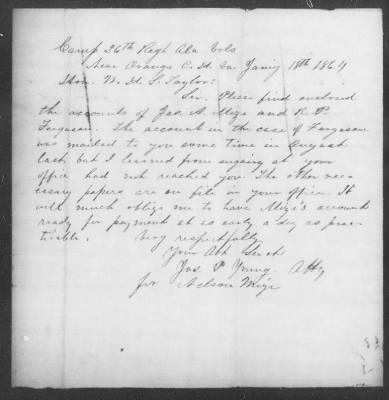 Camp 26th Regt Ala Vols
Near Orange C. H. Va. Jany 18th 1864
Hon. W. H. S. Taylor:
Sir. Please find enclosed
the accounts of Jas. A. Mize and R. P.
Ferguson. The account in the case of Ferguson
was mailed to you some time in August
last but I learned from enquiry at your
office had not reached you. The other nec-
essary papers are on file in your office. It
will much oblige me to have Mize's account
ready for payment at as early a day as prac-
ticable.
Very respectfully
Your Obt Servt
Jas. P. Young. Atty
for Nelson Mize